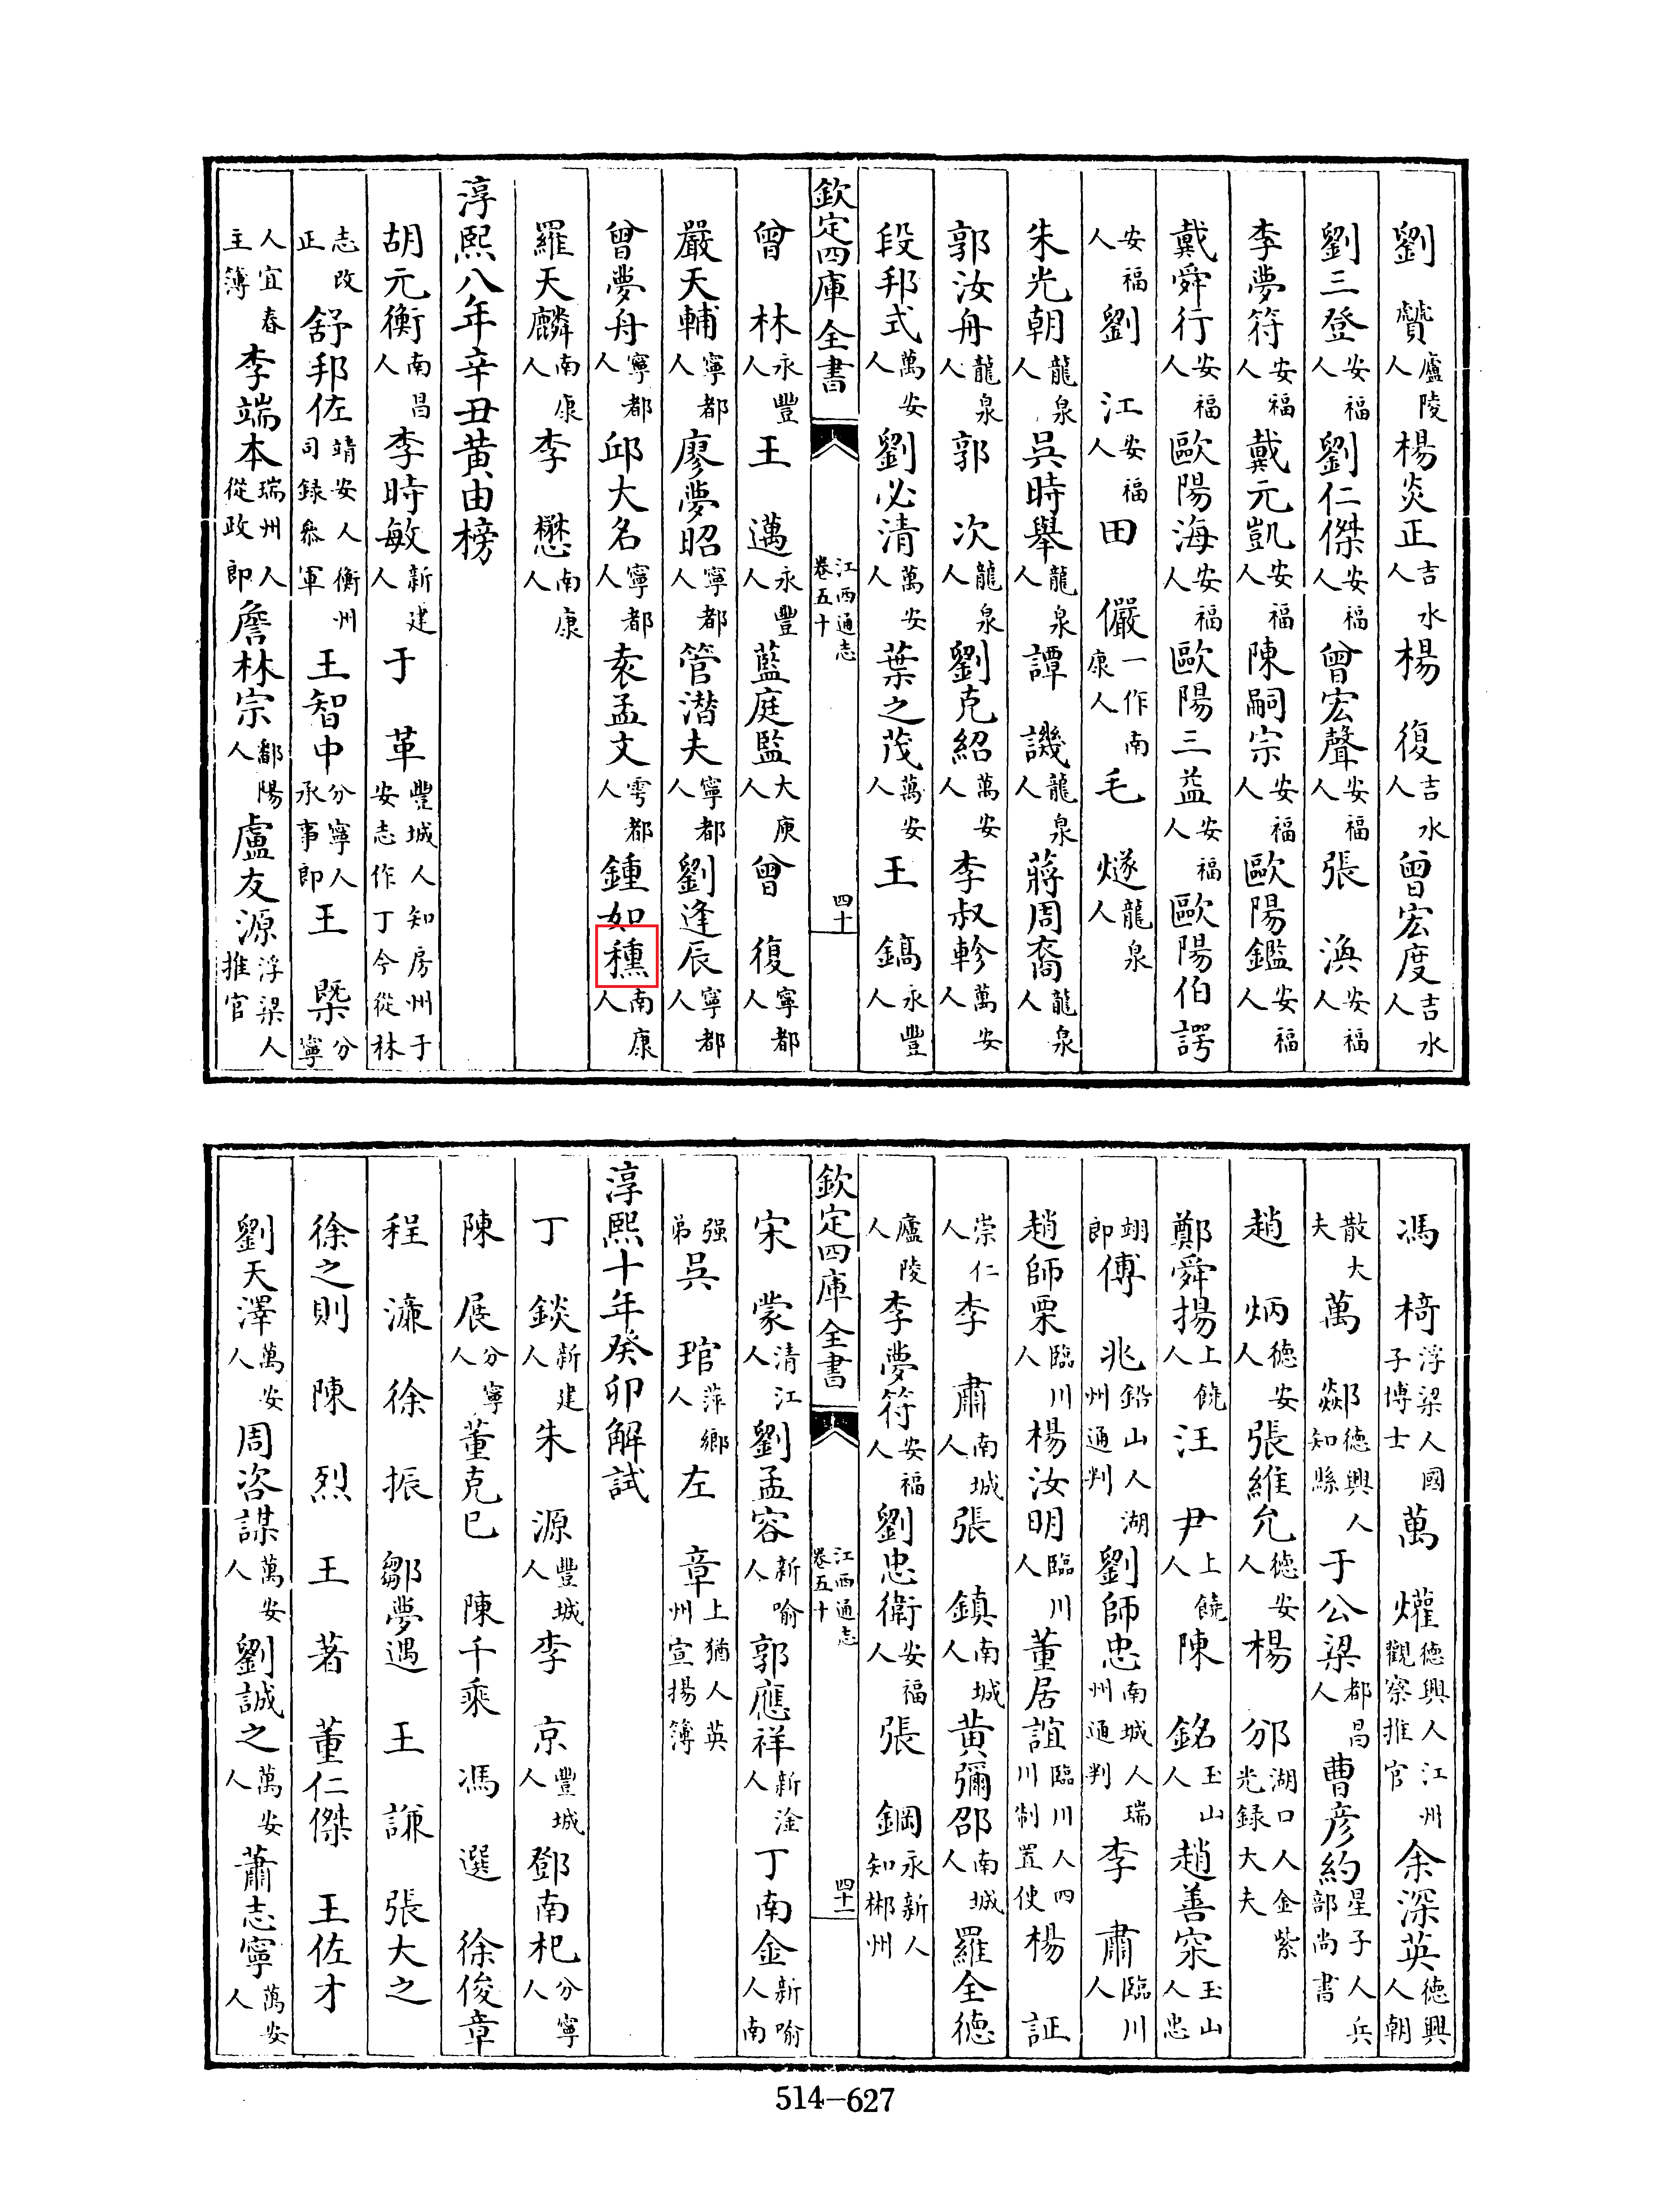 劉　贊人廬陵楊炎正人吉水楊　復人吉水曾宏度人吉水
劉三登人安福劉仁傑人安福曾宏聲人安福張　渙人安福
李夢符人安福戴元凱人安福陳嗣宗人安福歐陽鑑人安福
戴舜行人安福歐陽海人安福歐陽三益人安福歐陽伯諤
安福人劉　江安福人田　儼一作南康人毛　燧龍泉人
朱光朝龍泉人吳時舉龍泉人譚　譏龍泉人蔣周裔龍泉人
郭汝舟龍泉人郭　次龍泉人劉克紹萬安人李叔軫萬安人
段邦式萬安人劉必清萬安人葉之茂萬安人王　鎬永豐人
欽定四庫全書　江西通志卷五十　四十
曾　林永豐人王　邁永豐人藍庭監大庾人曾　復寧都人
嚴天輔寧都人廖夢昭寧都人管潛夫寧都人劉逢辰寧都人
曾夢舟寧都人邱大名寧都人袁孟文雩都人鍾如穩南康人
羅天麟南康人李　懋南康人
淳熙八年辛丑黃由榜
胡元衡南昌人李時敏新建人于　革豐城人知房州于安志作丁今從林
志改正舒邦佐靖安人衡州司録叅軍王智中分寧人承事郎王　槩分寧
人宜春主簿李端本瑞州人從政郎詹林宗鄱陽人盧友源浮梁人推官
馮　椅浮梁人國子博士萬　爟德興人江州觀察推官余深英德興人朝
散大夫萬　燚德興人知縣于公梁都昌人曹彥約星子人兵部尚書
趙　炳德安人張維允德安人楊　邠湖口人金紫光録大夫
鄭舜揚上饒人汪　尹上饒人陳　銘玉山人趙善㝝玉山人忠
翊郎傅　兆鉛山人湖州通判劉師忠南城人瑞州通判李　肅臨川人
趙師栗臨川人楊汝明臨川人董居誼臨川人四川制置使楊　証
崇仁人李　肅南城人張　鎮南城人黃彌邵南城人羅全德
廬陵人李夢符安福人劉忠衛安福人張　鋼永新人知郴州
欽定四庫全書　江西通志卷五十　四十一
宋　蒙清江人劉孟容新喻人郭應祥新淦人丁南金新喻人南
强弟吳　琯萍鄉人左　章上猶人英州宣揚簿
淳熙十年癸卯解試
丁　錟新建人朱　源豐城人李　京豐城人鄧南杞分寧人
陳　展分寧人董克巳　陳千乘　馮　選　徐俊章
程　濂　徐　振　鄒夢遇　王　謙　張大之
徐之則　陳　烈　王　著　董仁傑　王佐才
劉天澤萬安人周咨謀萬安人劉誠之萬安人蕭志寧萬安人
514—627